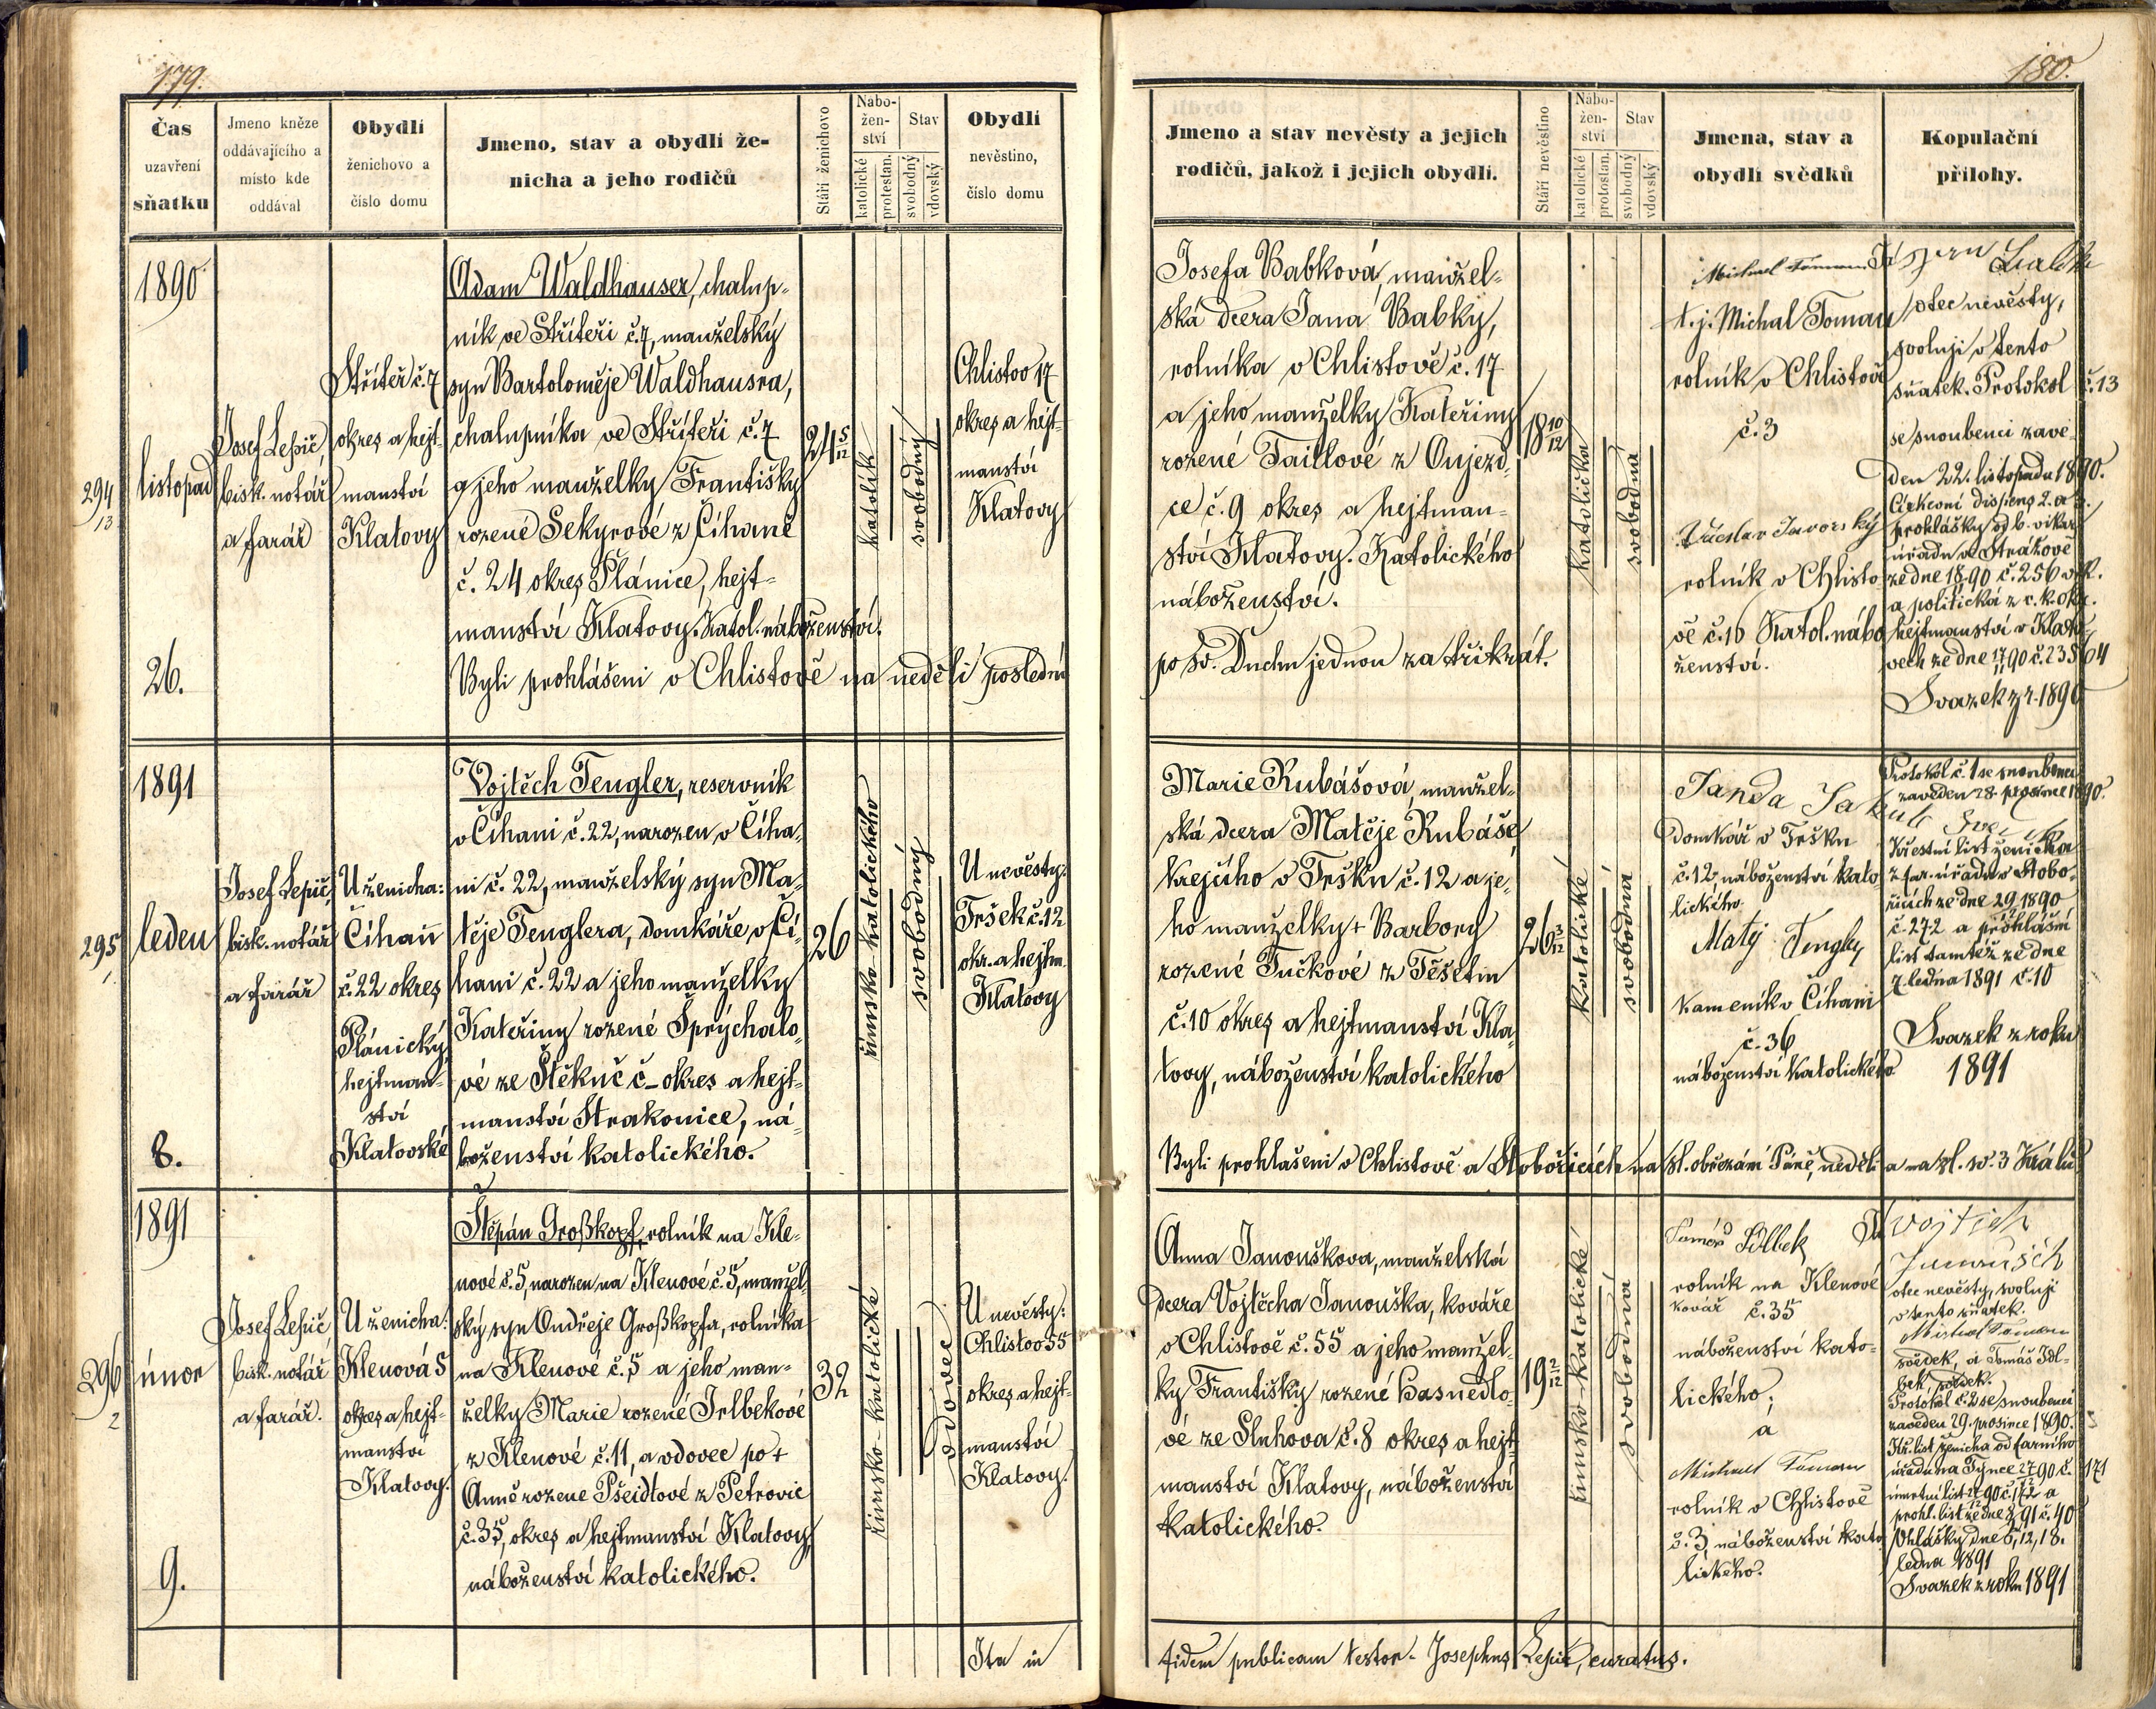 179.
Čas
uzavření
sňatku
Jmeno kněze
oddávajícího a
místo kde
oddával
Obydlí
ženichovo a
číslo domu
Jmeno, stav a obydlí že-
nicha a jeho rodičů
Stáří ženichovo
Nábo-
žen-
ství
katolické
protestan.
Stav
svobodný
vdovský
Obydlí
nevěstino,
číslo domu
1890
294
13
listopad
26.
Josef Lepič,
bisk. notář
a farář
Střiteř č. 7
okres a hejt-
manství
Klatovy
Adam Waldhauser, chalup-
ník ve Střiteři č. 7, manželský
syn Bartoloměje Waldhausra,
chalupníka ve Střiteři č. 7
a jeho manželky Františky
rozené Sekyrové z Číhaně
č. 24 okres Plánice, hejt-
manství Klatovy. Katol. náboženství.
Byli prohlášeni v Chlistově na neděli poslední
24 5/12
katolík
svobodný
Chlistov 17
okres a hejt-
manství
Klatovy
1891
295
1
leden
8.
Josef Lepič,
bisk. notář
a farář
U ženicha:
Číhaň
č. 22 okres
Plánický
hejtman-
ství
Klatovské
Vojtěch Tengler, reservník
v Číhani č. 22, narozen v Číha-
ni č. 22, manželský syn Ma-
těje Tenglera, domkáře v Čí-
hani č. 22 a jeho manželky
Kateřiny rozené Šprýchalo-
vé ze Štěkuč č – okres a hejt-
manství Strakonice, ná-
boženství katolického.
26
římsko-katolického
svobodný
U nevěsty:
Tršek č. 12
okr. a hejtm.
Klatovy
1891
296
2
únor
9.
Josef Lepič,
bisk. notář
a farář.
U ženicha:
Klenová 5
okres a hejt-
manství
Klatovy.
Štěpán Großkopf, rolník na Kle-
nové č. 5, narozen na Klenové č. 5, manžel-
ský syn Ondřeje Großkopfa, rolníka
na Klenové č. 5 a jeho man-
želky Marie rozené Irlbekové
z Klenové č. 11, a vdovec po +
Anně rozené Pšeidlové z Petrovic
č. 35, okres a hejtmanství Klatovy,
náboženství katolického.
32
římsko-katolické
vdovec
U nevěsty:
Chlistov 55
okres a hejt-
manství
Klatovy.
Ita in
180.
Jmeno a stav nevěsty a jejich
rodičů, jakož i jejich obydlí.
Stáří nevěstino
Nábo-
žen-
ství
katolické
protestan.
Stav
svobodný
vdovský
Jmena, stav a
obydlí svědků
Kopulační
přílohy.
Josefa Babková, manžel-
ská dcera Jana Babky,
rolníka v Chlistově č. 17
a jeho manželky Kateřiny
rozené Taillové z Oujezd-
ce č. 9 okres a hejtman-
ství Klatovy. Katolického
náboženství.
po sv. Duchu jednou za třikrát.
18 10/12
katolička
svobodná
Michael Toman
t. j. Michal Toman
rolník v Chlistově
č. 3
Javorský
rolník v Chlisto-
vě č. 16 Katol. nábo-
ženství.
otec nevěsty,
svoluji v tento
sňatek. Protokol č. 13
se snoubenci zave-
den 22. listopadu 1890.
Církevní dispens 2. a 3.
prohlášky od b. vikar.
úřadu ve Strážově
ze dne 18 90 č. 256
a politická z c. k. okr.
hejtmanství v Klato-
vech ze dne 17 90 č. 23564
Svazek z r. 1890
Marie Rubášová, manžel-
ská dcera Matěje Rubáše,
krejčího v Tršku č. 12 a je-
ho manželky + Barbory
rozené Tučkové z Těšetin
č. 10 okres a hejtmanství Kla-
tovy, náboženství katolického
Byli prohlášeni v Chlistově a Stobořicích na sl. obřezání Páně, neděli a na sl. sv. 3 Králů
26 3/12
katolické
svobodná
Janda Jakub
domkář v Tršku
č. 12, náboženství kato-
lického.
Matěj Tengler
kameník v Číhani
č. 36
náboženství katolického
Protokol č. 1 se snoubenci
zaveden 28. prosince 1890.
Křestní list ženicha
z far. úřadu v Stobo-
řicích ze dne 29 1890
č. 272 a prohlášní
list tamtéž ze dne
7 ledna 1891 č. 10
Svazek z roku
1891
Anna Janouškova, manželská
dcera Vojtěcha Janouška, kováře
v Chlistově č. 55 a jeho manžel-
ky Františky rozené Hasnedlo-
vé ze Sluhova č. 8 okres a hejt-
manství Klatovy, náboženství
katolického.
19 2/12
římsko-katolické
svobodná
Tomáš Irlbek
rolník na Klenové
kovář č. 35
náboženství kato-
lického;
a
Michael Toman
rolník v Chlistově
č. 3, náboženství kato-
lického.
Vojtěch
Janoušek
otec nevěsty, svoluji
v tento sňatek.
Michal Toman
svědek, a Tomáš Irl-
bek svědek.
Protokol č. 2 se snoubenci
zaveden 29. prosince 1890.
Kř. list ženicha od farního
úřadu na Týnce 27 90 č. 171
úmrtní list 27 90 č. 172 a
prohl. list ze dne 91 č. 40
Ohlášky dne 6, 12, 18.
ledna 1891
Svazek z roku 1891
fidem publicam testor - Josephus Lepič, curatus.